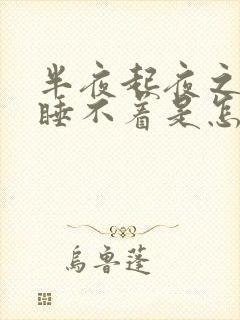 半夜起夜之
睡不着是怎
乌鲁蓬